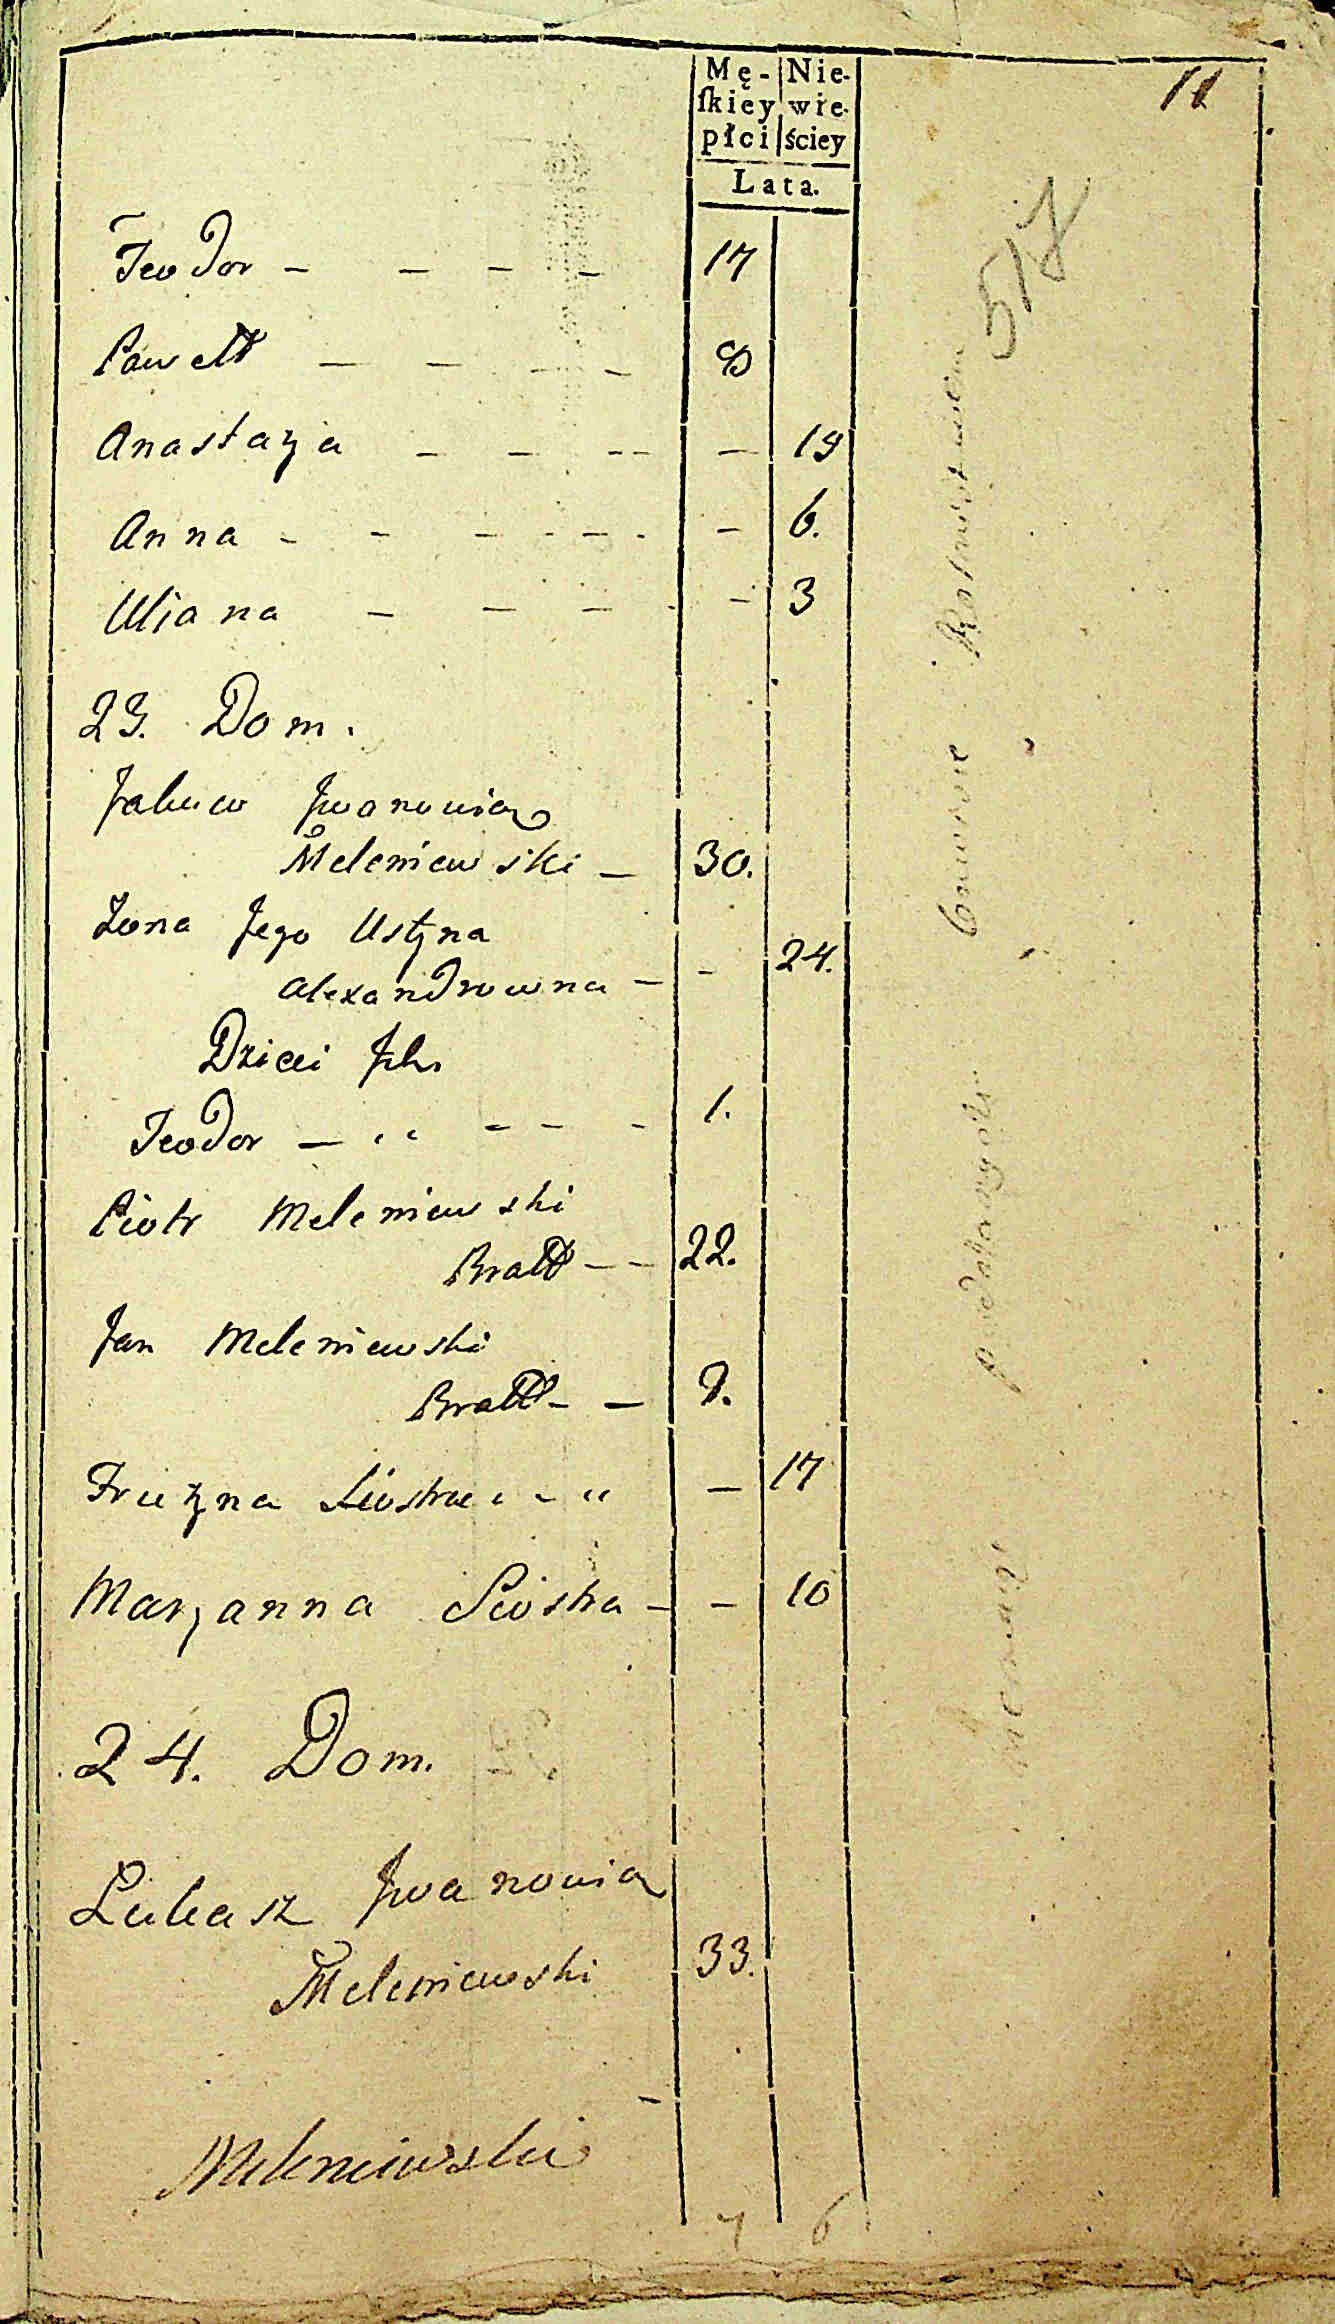 Mę- Nie-
ſkiey wie-
płci ściey
Lata.
11
517
Teodor - - - - 17
Pawełł - - - - 8
Anastazya - - -- - 19
Anna - - - - - - - 6.
Uliana - - - - - 3
23. Dom.
Jakuw Jwanowicz
Meleniewski - 30.
Żona Jego Ustyna
Alexandrowna - - 24.
Dzieci Jch
Teodor - - - - 1.
Piotr Meleniewski
Bratt - - 22.
Jan Meleniewski
Bratt - - 9.
Fruzyna Siostra - - 17
Maryanna Siostra - - 10
24. Dom.
Łukasz Jwanowicz
Meleniewski 33.
Meleniewski
7 6